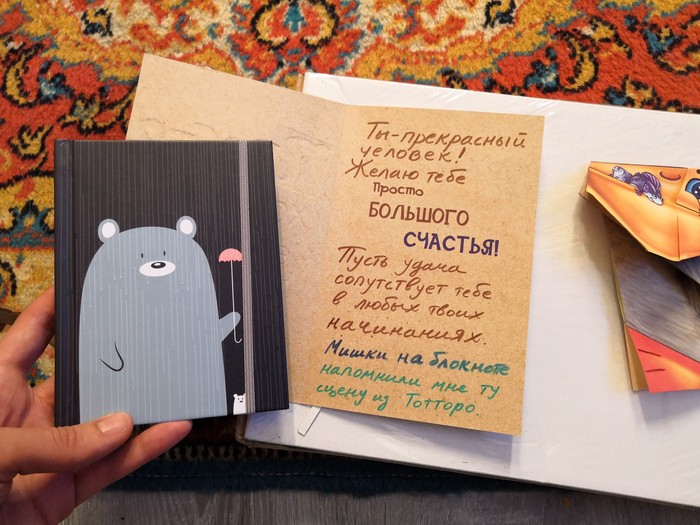 Ты-прекрасный
человек!
Желаю тебе
Просто
БОЛЬШОГО
СЧАСТЬЯ!
Пусть удача
сопутствует тебе
в любых твоих
начинаниях.
Мишки на блокноте
напомнили мне ту
сцену из Тоттаро.